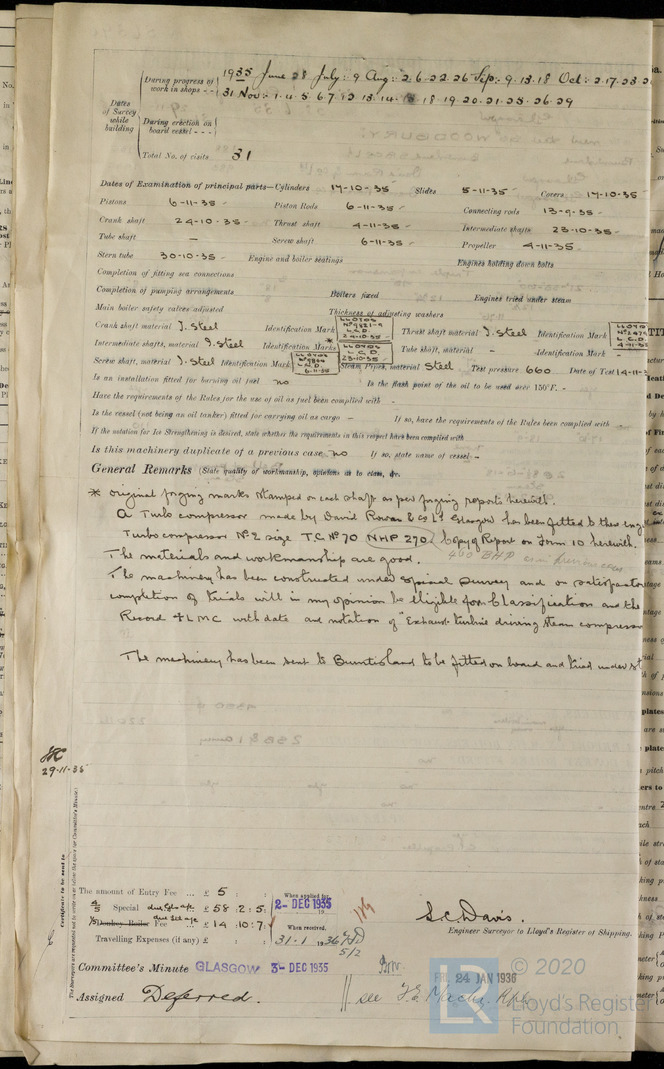 Dates of Survey while building
During progress of work in shops - - 1935 June 28 July: 9 Aug: 2.6.22.26 Sep: 9.13.18 Oct: 2.17.23.2
31 Nov: 1.4.5.6.7.12.13.14. 18.19.20.21.25.26.29
During erection on board vessel - - -
Total No. of visits 31
Dates of Examination of principal parts—Cylinders 17-10-35 Slides 5-11-35 Covers 17-10-35
Pistons 6-11-35 Piston Rods 6-11-35 Connecting rods 13-9-35
Crank shaft 24-10-35 Thrust shaft 4-11-35 Intermediate shafts 23-10-35
Tube shaft — Screw shaft 6-11-35 Propeller 4-11-35
Stern tube 30-10-35 Engine and boiler seatings Engines holding down bolts
Completion of fitting sea connections
Completion of pumping arrangements Boilers fixed Engines tried under steam
Main boiler safety valves adjusted Thickness of adjusting washers
Crank shaft material I. Steel Identification Mark LLOYDS Nº9821-9 L.C.D. 24-10-35 Thrust shaft material I. Steel Identification Mark LLOYD L.C.D. 4-11-35
Intermediate shafts, material I. Steel Identification Marks * LLOYDS L.C.D 23-10-35 Tube shaft, material - Identification Mark -
Screw shaft, material I. Steel Identification Mark LLOYDS 6-11-35 Steam Pipes, material Steel Test pressure 660 Date of Test 14-11-3
Is an installation fitted for burning oil fuel no Is the flash point of the oil to be used over 150°F. -
Have the requirements of the Rules for the use of oil as fuel been complied with -
Is the vessel (not being an oil tanker) fitted for carrying oil as cargo - If so, have the requirements of the Rules been complied with -
If the notation for Ice Strengthening is desired, state whether the requirements in this respect have been complied with
Is this machinery duplicate of a previous case no If so, state name of vessel -
General Remarks (State quality of workmanship, opinions as to class, &c.
* Original forging marks stamped on each shaft as per forging reports herewith.
A Turbo compressor made by David Rowan & Co Ld Glasgow has been fitted to these eng
Turbo compressor Nº2 size T.C. Nº 70 (NHP 270) Copy of Report on Form 10 herewith.
The materials and workmanship are good. 400 BHP
The machinery has been constructed under special survey and on satisfactor
completion of trials will in my opinion be eligible for Classification and the
Record + LMC with date and notation of "Exhaust turbine driving steam compressor
The machinery has been sent to Burntisland to be fitted on board and tried under st
29-11-35
Certificate to be sent to
The amount of Entry Fee ... £ 5 : :
4/5 Special due Gls ofe £ 58 : 2 : 5
1/5 Donkey Boiler Fee ... £ 14 : 10 : 7
Travelling Expenses (if any) £ : :
When applied for,
2- DEC 1935
When received,
31.1.1936
5/2
S.C. Davis.
Engineer Surveyor to Lloyd's Register of Shipping.
Committee's Minute GLASGOW 3- DEC 1935
FRI. 24 JAN 1936
Assigned Deferred.
see F.E. Machy. Rpt.
© 2020
Lloyd's Register
Foundation
LR